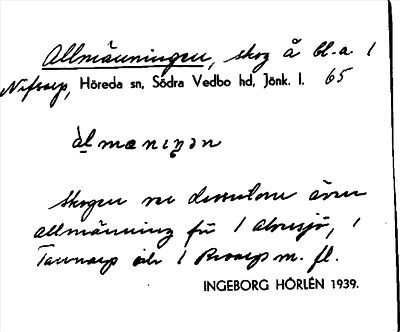 Allmänningen, skog å bl.a. 1
Höreda sn, Södra Vedbo hd, Jönk. l. 65
àlmæniŋən
Skogen var dessutom även
allmänning för 1 Alvesjö, 1
och 1 m. fl.
INGEBORG HÖRLÉN 1939.